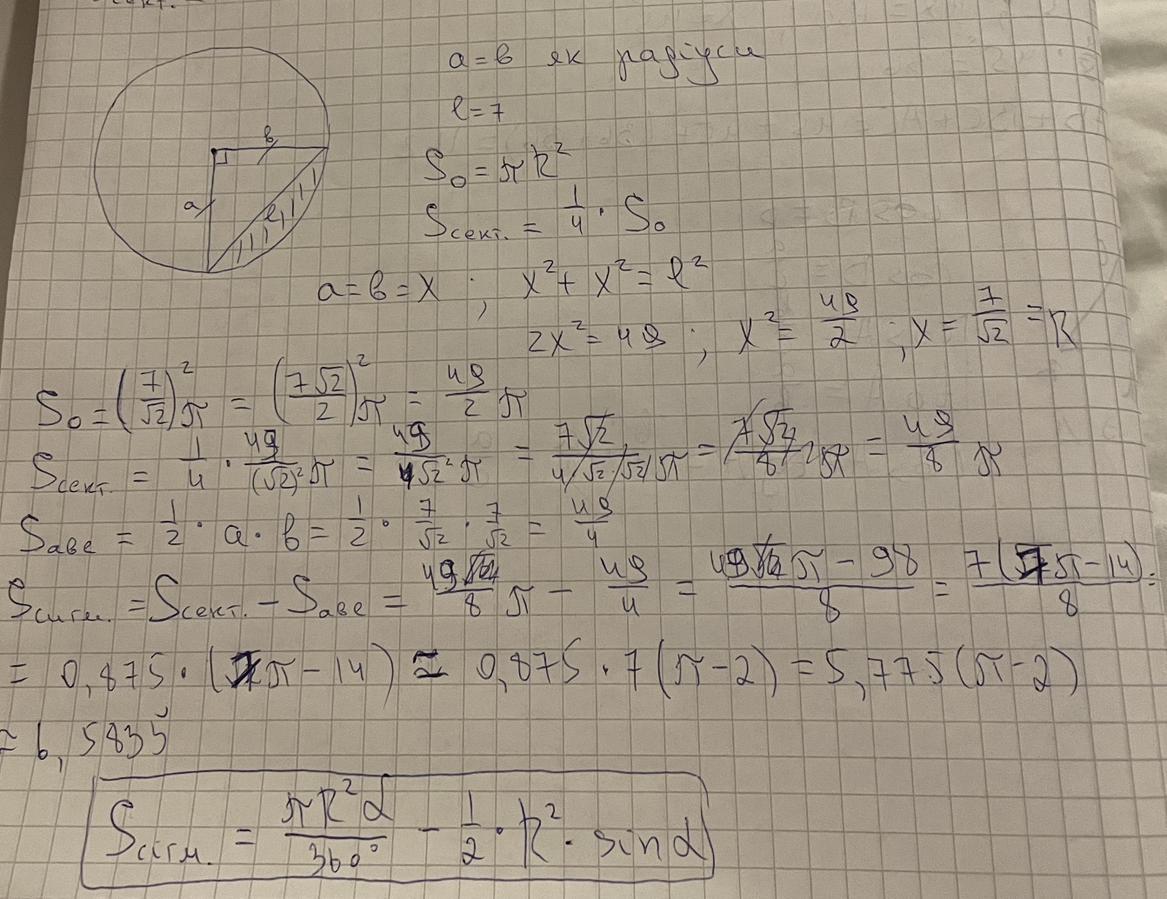 сект.
a = b як радіуси
l = 7
S₀ = πR²
Sсект. = 1/4 · S₀
b
a
l
a = b = x ; x² + x² = l²
2x² = 49 ; x² = 49/2 ; x = 7/√2 = R
S₀ = (7/√2)² π = (7√2/2)² π = 49/2 π
Sсект. = 1/4 · 49/(√2)² π = 49/4√2² π = 7√2/4√2√2 π = 7√2/8 π = 49/8 π
Sаве = 1/2 · a · b = 1/2 · 7/√2 · 7/√2 = 49/4
Sсигм. = Sсект. − Sаве = 49/8 π − 49/4 = (49π − 98)/8 = 7(7π − 14)/8 =
= 0,875 · (7π − 14) ≈ 0,875 · 7(π − 2) = 5,775(π − 2)
≈ 6,5835
Sсигм. = πR²α/360° − 1/2 · R² · sin α